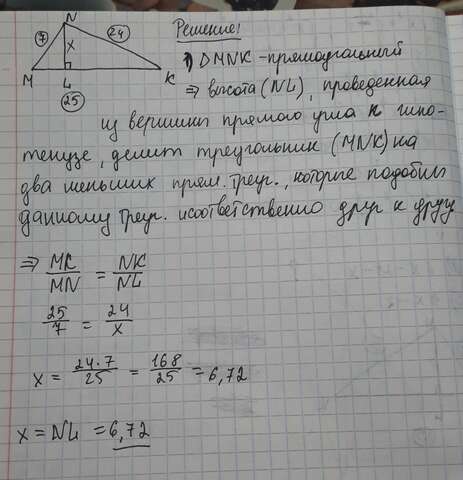 N
7
24
x
M
L
K
25
Решение!
1) ΔMNK - прямоугольный
⇒ высота (NL), проведенная
из вершины прямого угла к гипо-
тенузе, делит треугольник (MNK) на
два меньших прям. треуг., которые подобны
данному треуг. и соответственно друг к другу
⇒ MK/MN = NK/NL
25/7 = 24/x
x = 24·7/25 = 168/25 = 6,72
x = NL = 6,72